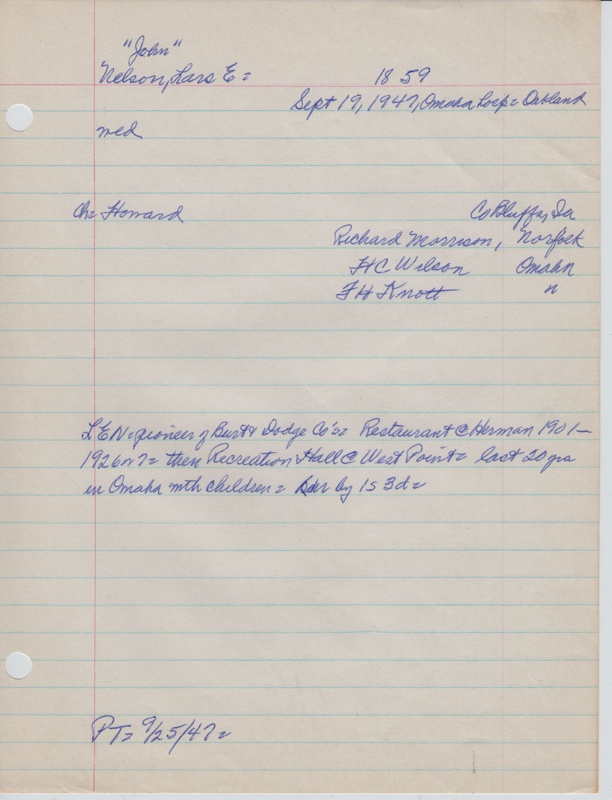 "John"
Nelson, Lars E = 1859
Sept 19, 1947, Omaha Hosp = Oakland
wed
Ch = Howard Co Bluffs, Ia
Richard Morrison, Norfolk
H C Wilson Omaha
F H Knott "
L E N = pioneer of Burt & Dodge Co's = Restaurant @ Herman 1901-
1926 or 7 = then Recreation Hall @ West Point = last 20 yrs
in Omaha with children = Sur by 1s 3d =
PT = 9/25/47 =